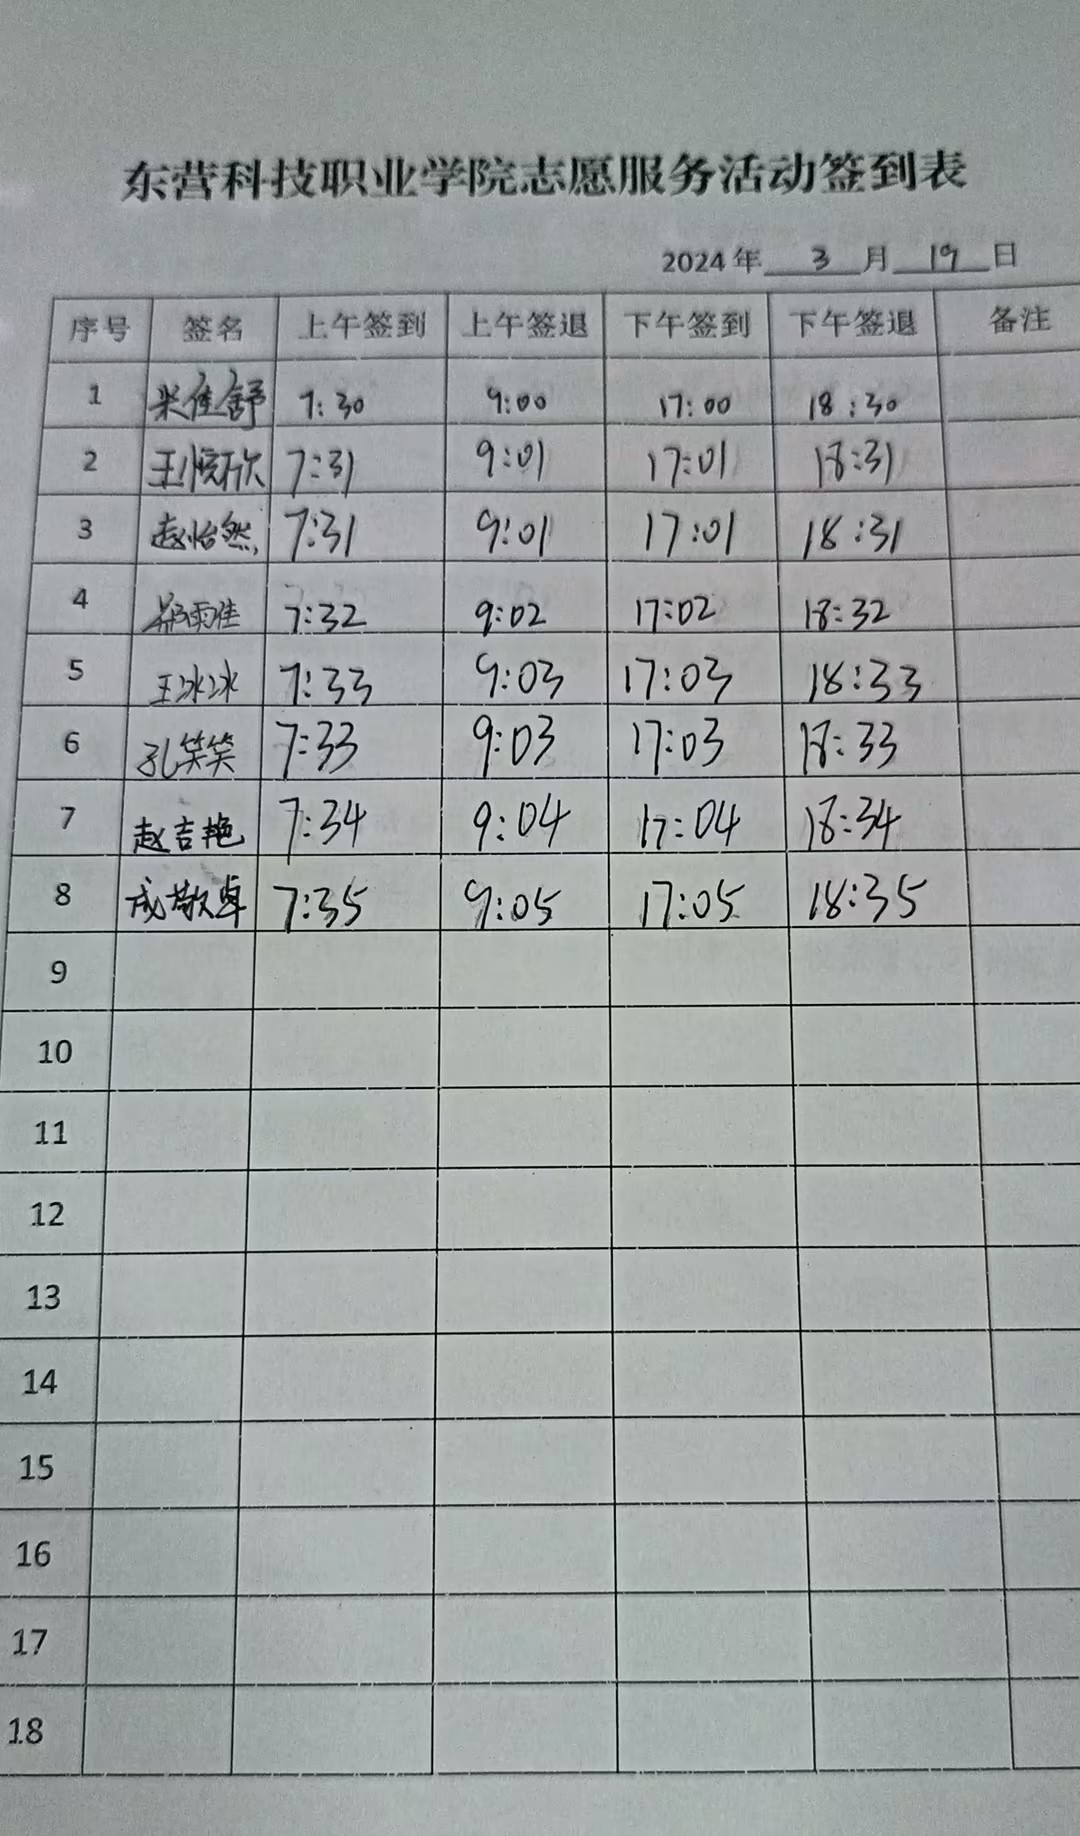 东营科技职业学院志愿服务活动签到表
2024年 3 月 19 日
序号 签名 上午签到 上午签退 下午签到 下午签退 备注
1 佳舒 7:30 9:00 17:00 18:30
2 王悦欣 7:31 9:01 17:01 18:31
3 赵怡然 7:31 9:01 17:01 18:31
4 雨佳 7:32 9:02 17:02 18:32
5 王冰冰 7:33 9:03 17:03 18:33
6 孔笑笑 7:33 9:03 17:03 18:33
7 赵吉艳 7:34 9:04 17:04 18:34
8 成敬卓 7:35 9:05 17:05 18:35
9
10
11
12
13
14
15
16
17
18